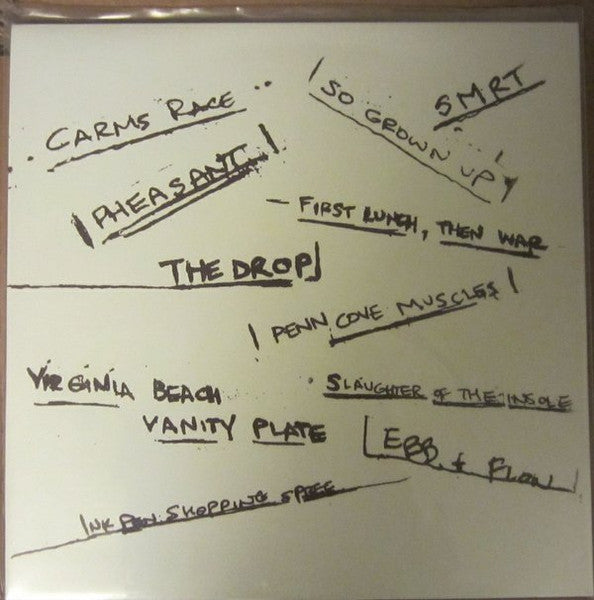 CARMS RACE
SO GROWN UP
SMRT
PHEASANT
FIRST LUNCH, THEN WAR
THE DROP
PENN COVE MUSCLES
VIRGINIA BEACH
VANITY PLATE
SLAUGHTER OF THE INSOLE
EBB + FLOW
INK PEN SHOPPING SPREE